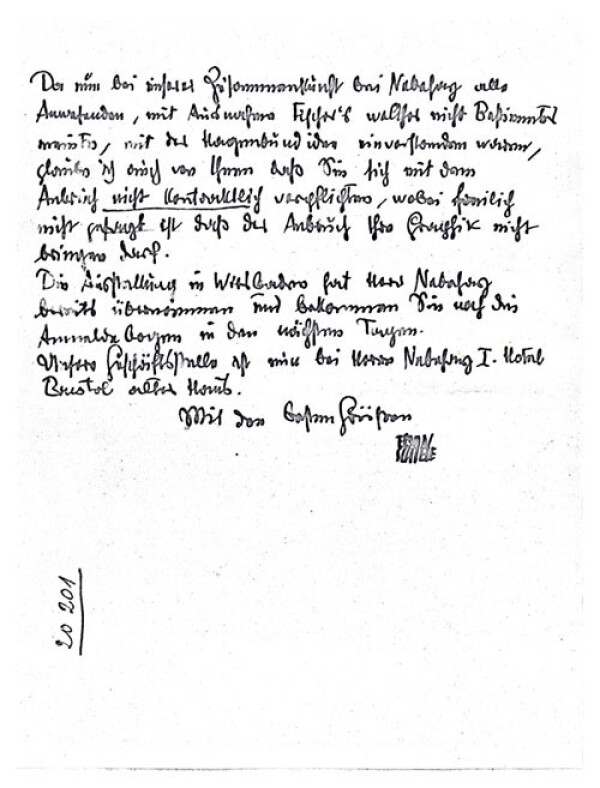 Da nun bei unserer Zusammenkunft bei Nebehay alle
Anwesenden, mit Ausnahme Fischer's welcher nicht Bestimmtes
meinte, mit der Hagenbund idee einverstanden waren,
glaube ich auch von Ihnen daß Sie sich mit dem
Anbruch nicht kontracktlich verpflichten, wobei freilich
nicht gesagt ist daß der Anbruch Ihre Graphik nicht
bringen darf.
Die Ausstellung in Wiesbaden hat Herr Nebehay
bereits übernommen und bekommen Sie noch die
Anmelde bogen in den nächsten Tagen.
Unsere Geschäftsstelle ist nun bei Herrn Nebehay I. Hotel
Bristol altes Haus.
Mit den besten Grüßen
20 201